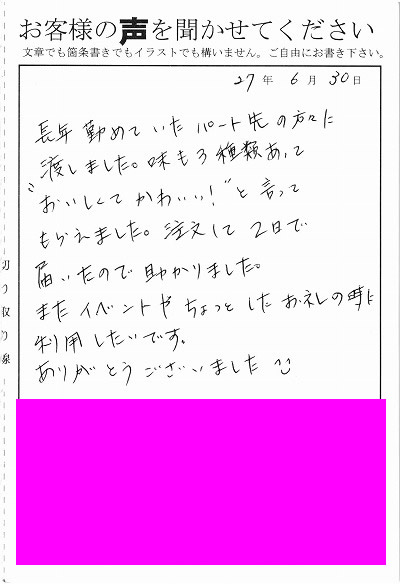 お客様の声を聞かせてください
文章でも箇条書きでもイラストでも構いません。ご自由にお書き下さい。
27年 6月 30日
長年勤めていたパート先の方々に
渡しました。味も3種類あって
"おいしくてかわいい!"と言って
もらえました。注文して2日で
届いたので助かりました。
またイベントやちょっとしたお礼の時に
利用したいです。
ありがとうございました
切り取り線